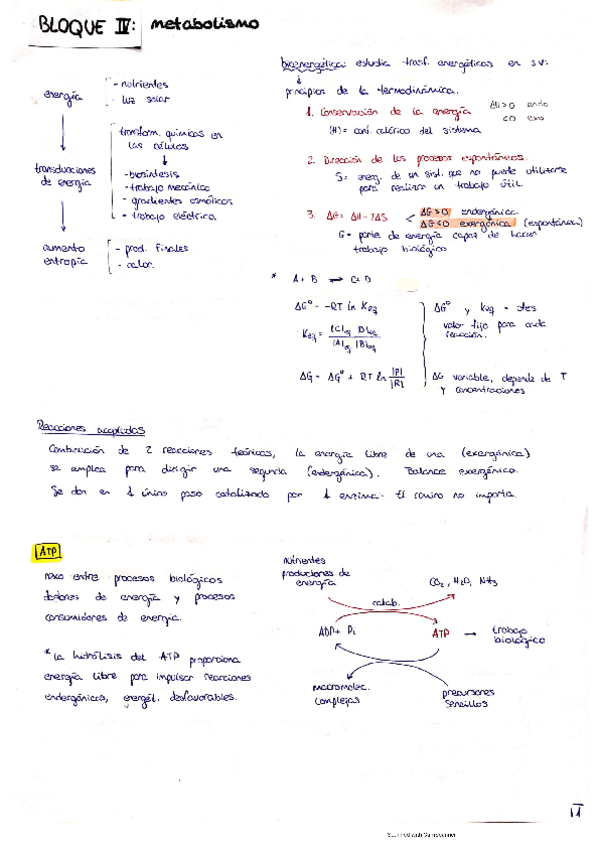 BLOQUE IV: metabolismo
energía
- nutrientes
- luz solar
transform. químicas en
las células
transducciones
de energía
- biosíntesis
- trabajo mecánico
- gradientes osmóticos
- trabajo eléctrico
aumento
entropía
- prod. finales
- calor.
bioenergética: estudia trasf. energéticas en s.v:
principios de la termodinámica.
1. Conservación de la energía ΔH>0 endo
<0 exo
(H) = cont. calórico del sistema
2. Dirección de los procesos espontáneos.
S = energ. de un sist. que no puede utilizarse
para realizar un trabajo útil.
3. ΔG = ΔH - TΔS
ΔG>0 endergónica.
ΔG<0 exergónica (espontánea)
G = parte de energía capaz de hacer
trabajo biológico
* A + B ⇌ C + D
ΔGº = -RT ln Keq
Keq = [C]eq [D]eq
[A]eq [B]eq
ΔGº y Keq = ctes
valor fijo para cada
reacción.
ΔG = ΔGº + RT ln [P]
[R]
ΔG variable, depende de T
y concentraciones
Reacciones acopladas
Combinación de 2 reacciones teóricas, la energía libre de una (exergónica)
se emplea para dirigir una segunda (endergónica). Balance exergónico.
Se dan en 1 único paso catalizado por 1 enzima. El camino no importa.
ATP
nexo entre procesos biológicos
dadores de energía y procesos
consumidores de energía.
* la hidrólisis del ATP proporciona
energía libre para impulsar reacciones
endergónicas, energét. desfavorables.
nutrientes
productores de
energía
CO₂, H₂O, NH₃
catab.
ADP + Pi
ATP → trabajo
biológico
macromolec.
complejas
precursores
sencillos